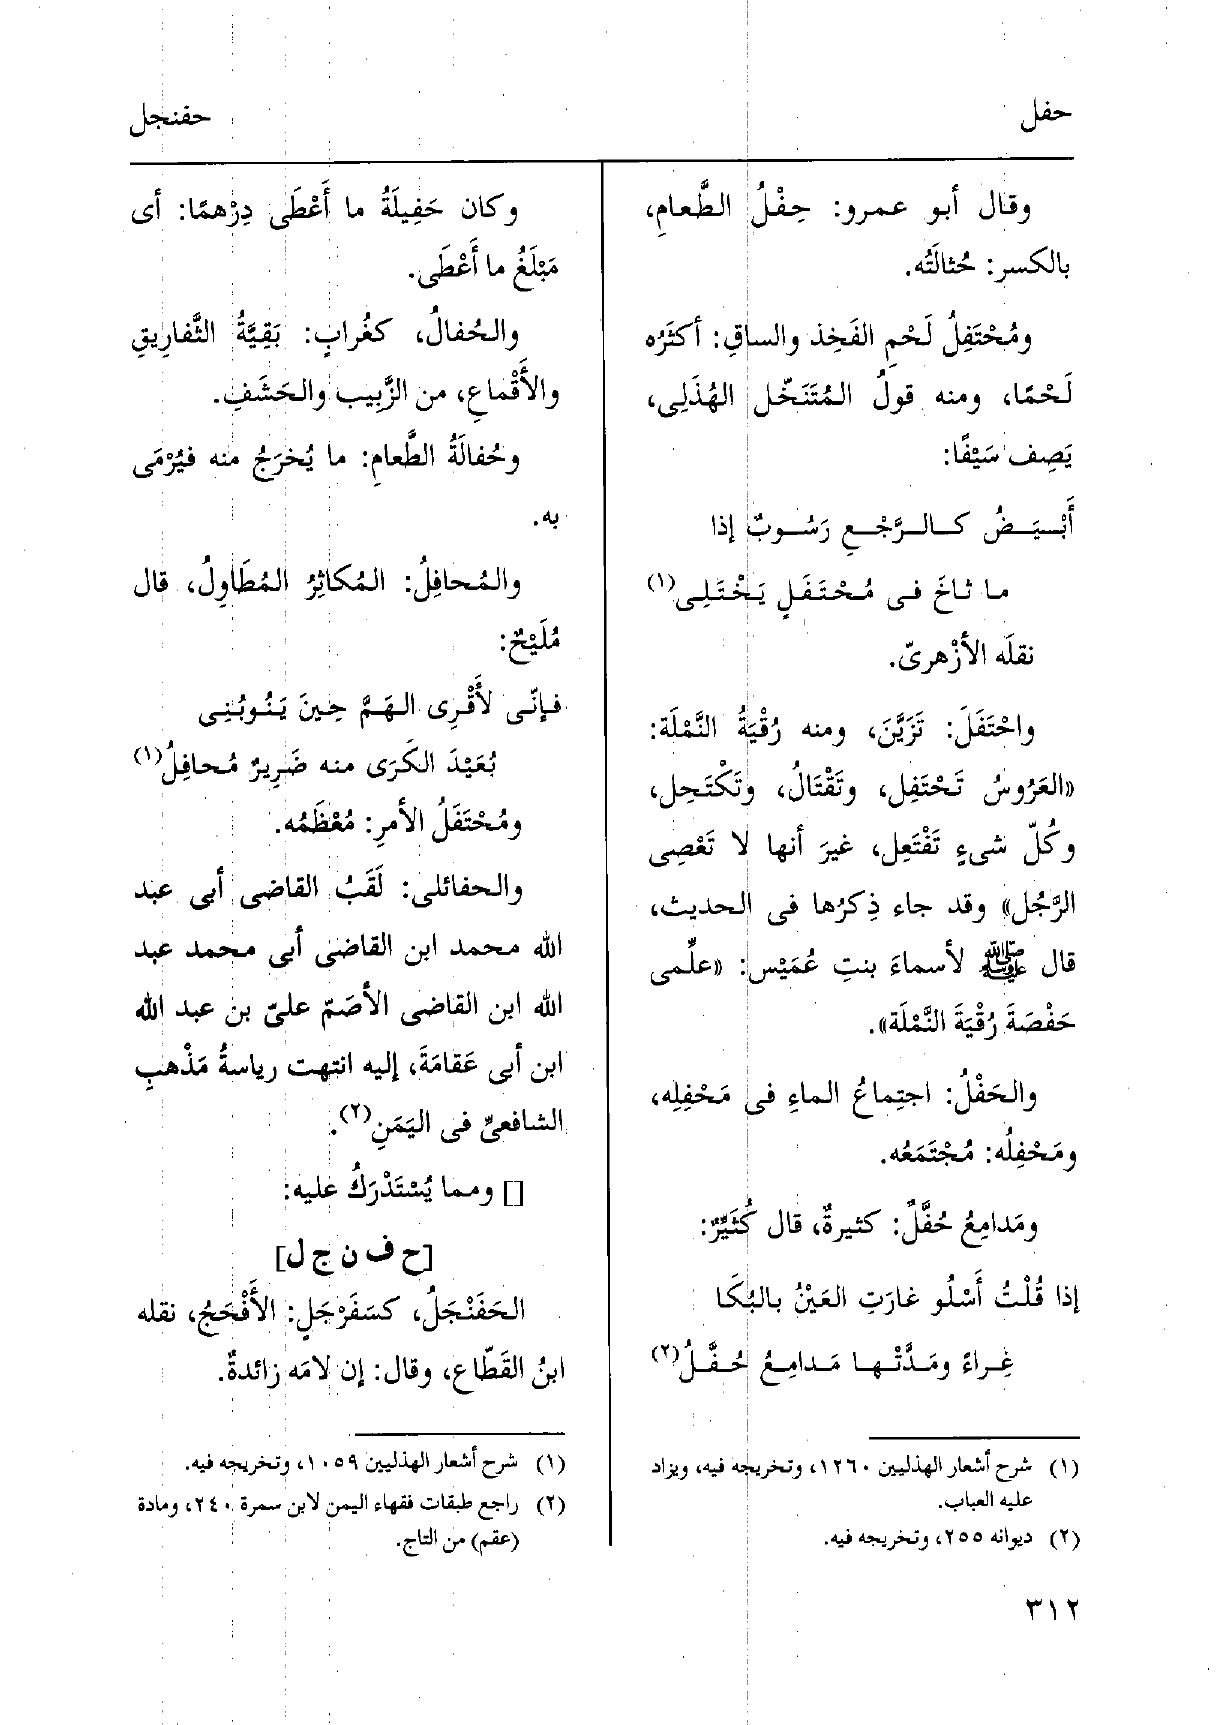 حفل
حفنجل
وقال أبو عمرو: حِفْلُ الطَّعامِ،
بالكسر: حُثالَتُه.
ومُحْتَفِلُ لَحْمِ الفَخِذ والساقِ: أكثَرُه
لَحْمًا، ومنه قولُ المُتَنَخِّل الهُذَلِى،
يَصِف سَيْفًا:
أَبْـيَـضُ كـالـرَّجْـعِ رَسُـوبٌ إذا
ما ثاخَ فى مُحْتَفَلٍ يَخْتَلِى(١)
نقلَه الأزْهرىّ.
واحْتَفَلَ: تَزَيَّنَ، ومنه رُقْيَةُ النَّمْلَة:
«العَرُوسُ تَحْتَفِل، وتَقْتَالُ، وتَكْتَحِل،
وكُلّ شىءٍ تَفْتَعِل، غيرَ أنها لا تَعْصِى
الرَّجُل» وقد جاء ذِكرُها فى الحديث،
قال ﷺ لأسماءَ بنتِ عُمَيْس: «علِّمى
حَفْصَةَ رُقْيَةَ النَّمْلَة».
والحَفْلُ: اجتِماعُ الماءِ فى مَحْفِلِه،
ومَحْفِلُه: مُجْتَمَعُه.
ومَدامِعُ حُفَّلٌ: كثيرةٌ، قال كُثَيِّرٌ:
إذا قُلْتُ أَسْلُو غارَتِ العَيْنُ بالبُكَا
غِراءً ومَدَّتْها مَدامِعُ حُفَّلُ(٢)
(١) شرح أشعار الهذليين ١٢٦٠، وتخريجه فيه، ويزاد
عليه العباب.
(٢) ديوانه ٢٥٥، وتخريجه فيه.
وكان حَفِيلَةُ ما أَعْطَى دِرْهمًا: أى
مَبْلَغُ ما أَعْطَى.
والحُفالُ، كغُرابٍ: بَقِيَّةُ الثَّفارِيقِ
والأَقْماعِ، من الزَّبِيب والحَشَفِ.
وحُفالَةُ الطَّعامِ: ما يُخرَجُ منه فيُرْمَى
به.
والمُحافِلُ: المُكاثِرُ المُطَاوِلُ، قال
مُلَيْحٌ:
فإنّى لأَقْرِى الهَمَّ حِينَ يَنُوبُنِى
بُعَيْدَ الكَرَى منه ضَرِيرٌ مُحافِلُ(١)
ومُحْتَفَلُ الأمرِ: مُعْظَمُه.
والحفائلى: لَقَبُ القاضى أبى عبد
الله محمد ابن القاضى أبى محمد عبد
الله ابن القاضى الأصَمّ علىّ بن عبد الله
ابن أبى عَقامَةَ، إليه انتهت رياسةُ مَذْهبِ
الشافعىِّ فى اليَمَنِ(٢).
[] ومما يُسْتَدْرَكُ عليه:
[ح ف ن ج ل]
الحَفَنْجَلُ، كسَفَرْجَلٍ: الأَفْحَجُ، نقله
ابنُ القَطّاع، وقال: إن لامَه زائدةٌ.
(١) شرح أشعار الهذليين ١٠٥٩، وتخريجه فيه.
(٢) راجع طبقات فقهاء اليمن لابن سمرة ٢٤٠، ومادة
(عقم) من التاج.
٣١٢